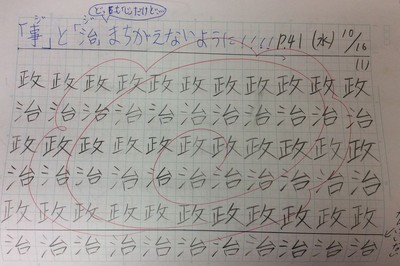 どっちも「じ」だけど…
「事」と「治」まちがえないように!!!! P41 (水) 10/16
(1)
政政政政政政政政政政政政
治治治治治治治治治治治治
政政政政政政政政政政政政
治治治治治治治治治治治治
政政政政政政政政政政政政
治治治治治治治治治治治治